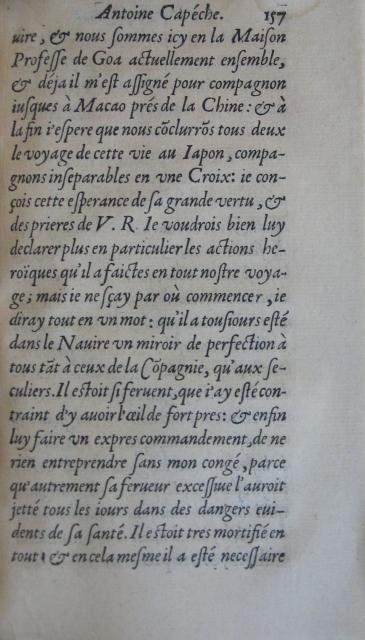 Antoine Capéche. 157
uire, & nous sommes icy en la Maison
Professe de Goa actuellement ensemble,
& déja il m'est assigné pour compagnon
iusques à Macao prés de la Chine: & à
la fin i'espere que nous cõclurrõs tous deux
le voyage de cette vie au Iapon, compa-
gnons inseparables en vne Croix: ie con-
çois cette esperance de sa grande vertu, &
des prieres de V. R. Ie voudrois bien luy
declarer plus en particulier les actions he-
roïques qu'il a faictes en tout nostre voya-
ge; mais ie ne sçay par où commencer, ie
diray tout en vn mot: qu'il a tousiours esté
dans le Nauire vn miroir de perfection à
tous tãt à ceux de la Cõpagnie, qu'aux se-
culiers. Il estoit si feruent, que i'ay esté con-
traint d'y auoir l'œil de fort pres: & enfin
luy faire vn expres commandement, de ne
rien entreprendre sans mon congé, parce
qu'autrement sa ferueur excessiue l'auroit
jetté tous les iours dans des dangers eui-
dents de sa santé. Il estoit tres mortifié en
tout: & en cela mesme il a esté necessaire